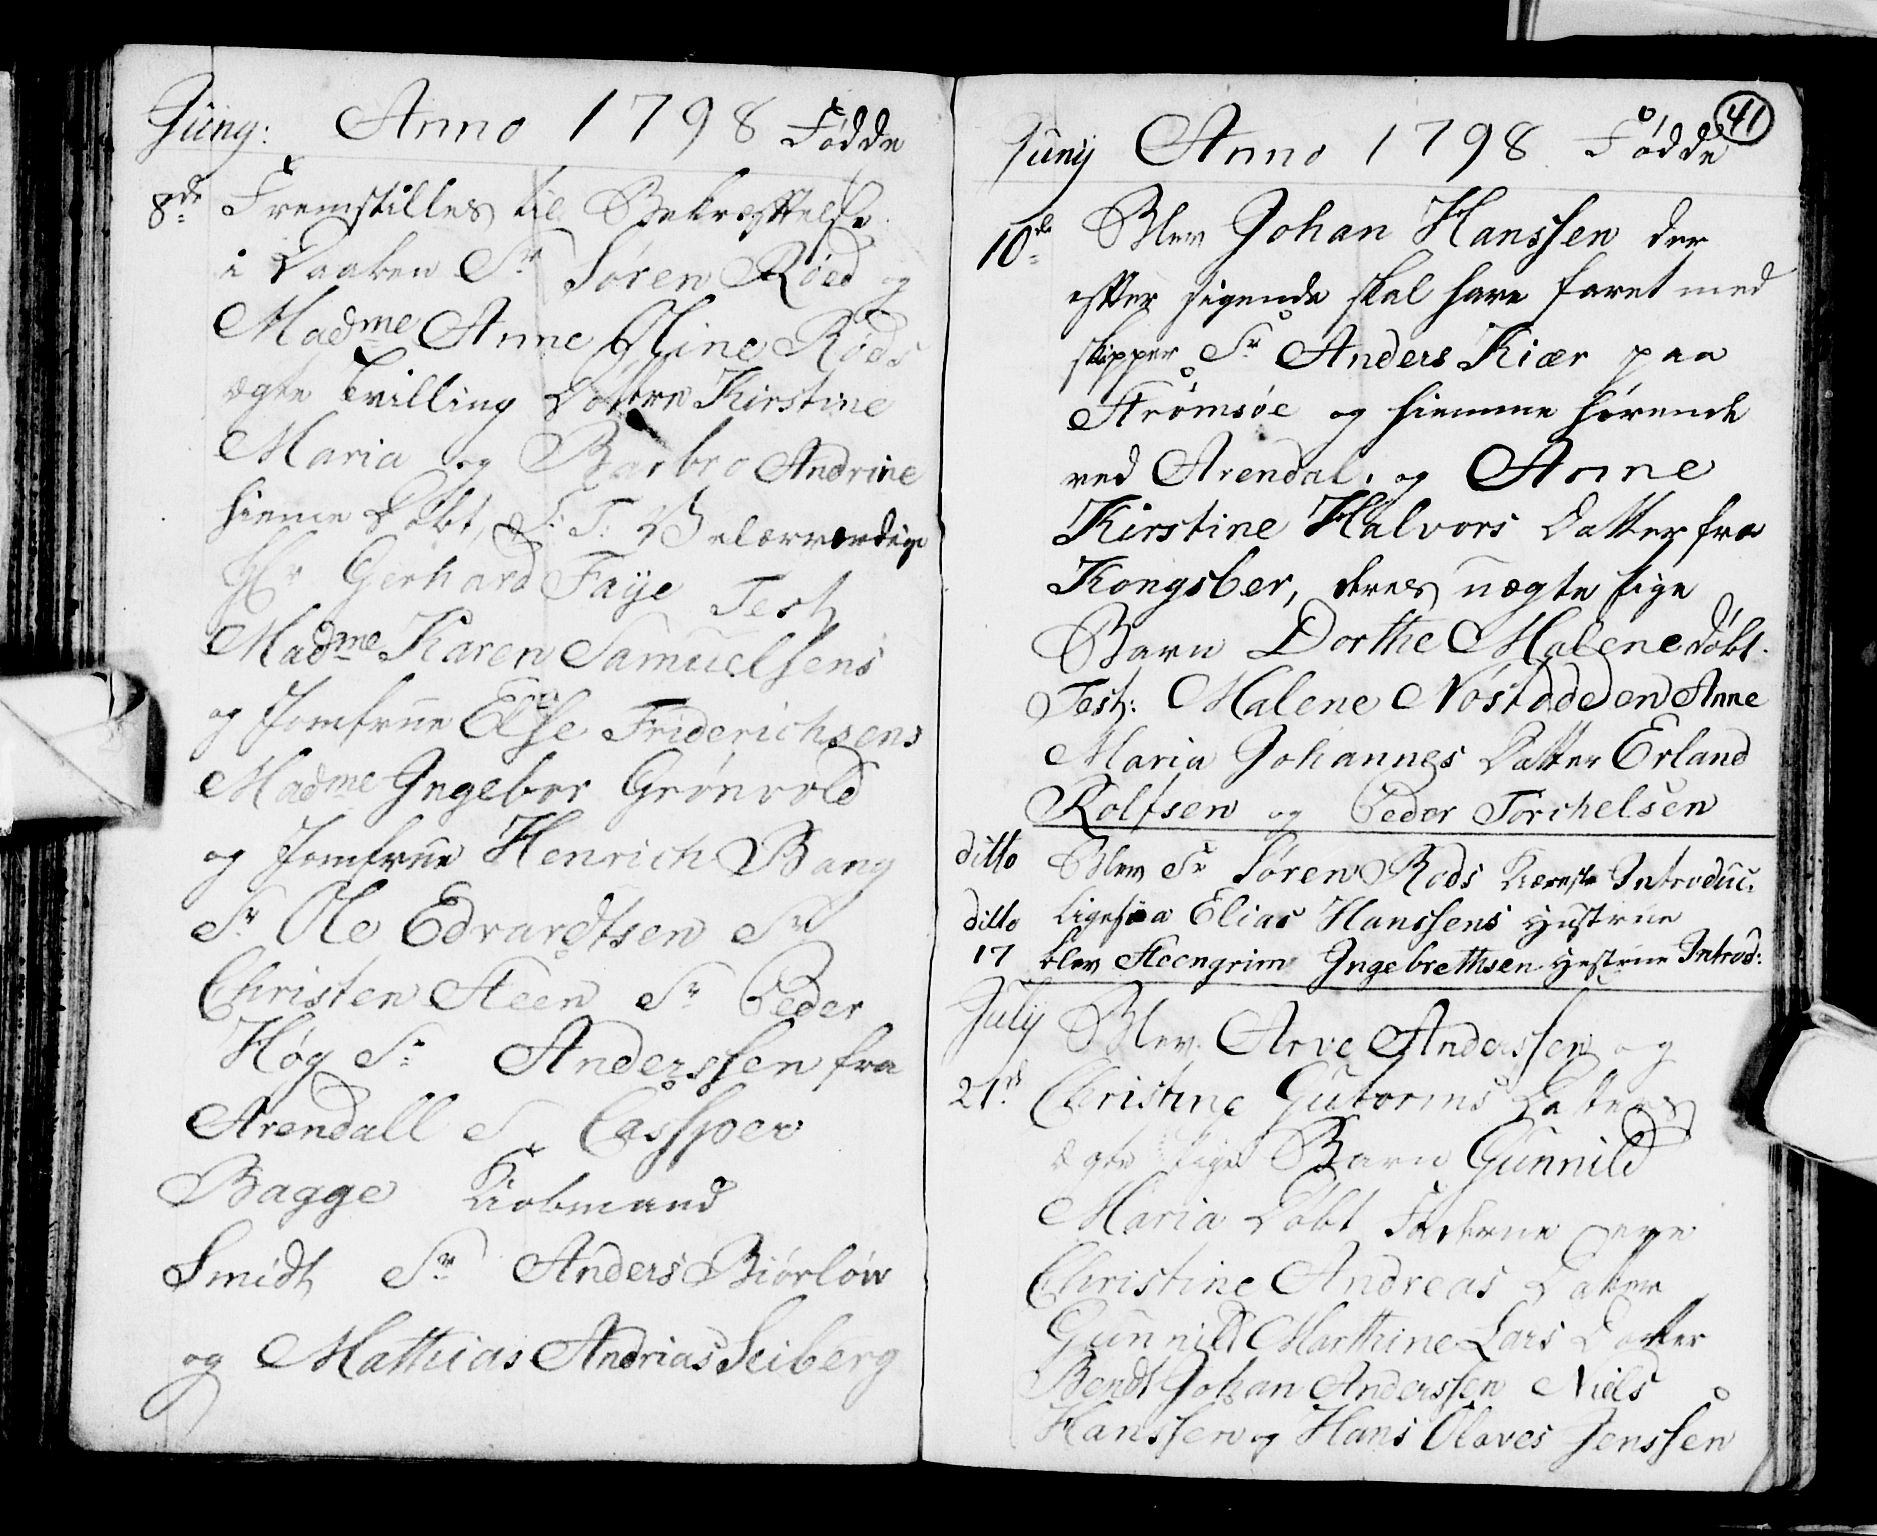 Juny: Anno 1798 Fødde
8de Fremstilles til Bekræftelse
i Daaben Sr Søren Røed og
Madme Anne Oline Røds
ægte Tvilling Døttre Kirstine
Maria og Barbro Andrine
hieme Døbt, S: T: Velærværdige
Hr Gerhard Faye Test
Madme Karen Samuelsens
og Jomfrue Else Friderichsens
Madme Ingebor Grönvold
og Jomfrue Henrich Bang
Sr Ole Edvardtsen Sr
Christen Steen Sr Peder
Høg Sr Anderssen fra
Arendall S Cassper
Bagge Kiobmand
Smidt Sr Anders Biörlöw
og Mathias Andrias Seiberg
41
Junij Anno 1798 Födde
10de Blev Johan Hanssen der
efter sigende skal have faret med
skipper Sr Anders Kiær paa
Strømsøe og hiemme hörende
ved Arendal, og Anne
Kirstine Halvors Datter fra
Kongsber, deres uægte Pige
Barn Dorthe Malene döbt.
Test: Malene Nöstdadden Anne
Maria Johannes Datter Erland
Rolfsen og Peder Torchelsen
ditto Blev Sr Søren Rods Kiereste Introduc.
ditto Ligesaa Elias Hanssens Hustrue
17 blev Steengrim Ingebrethsen Hustrue Introd:
July Blev Arve Anderssen og
21de Christine Gutorms Datters
ægte Pige Barn Gunnild
Maria Döbt Fadderne vare
Christine Andreas Datter
Gunnild Marthine Lars Datter
Bendt Johan Anderssen Niels
Hanssen og Hans Olaves Jenssen